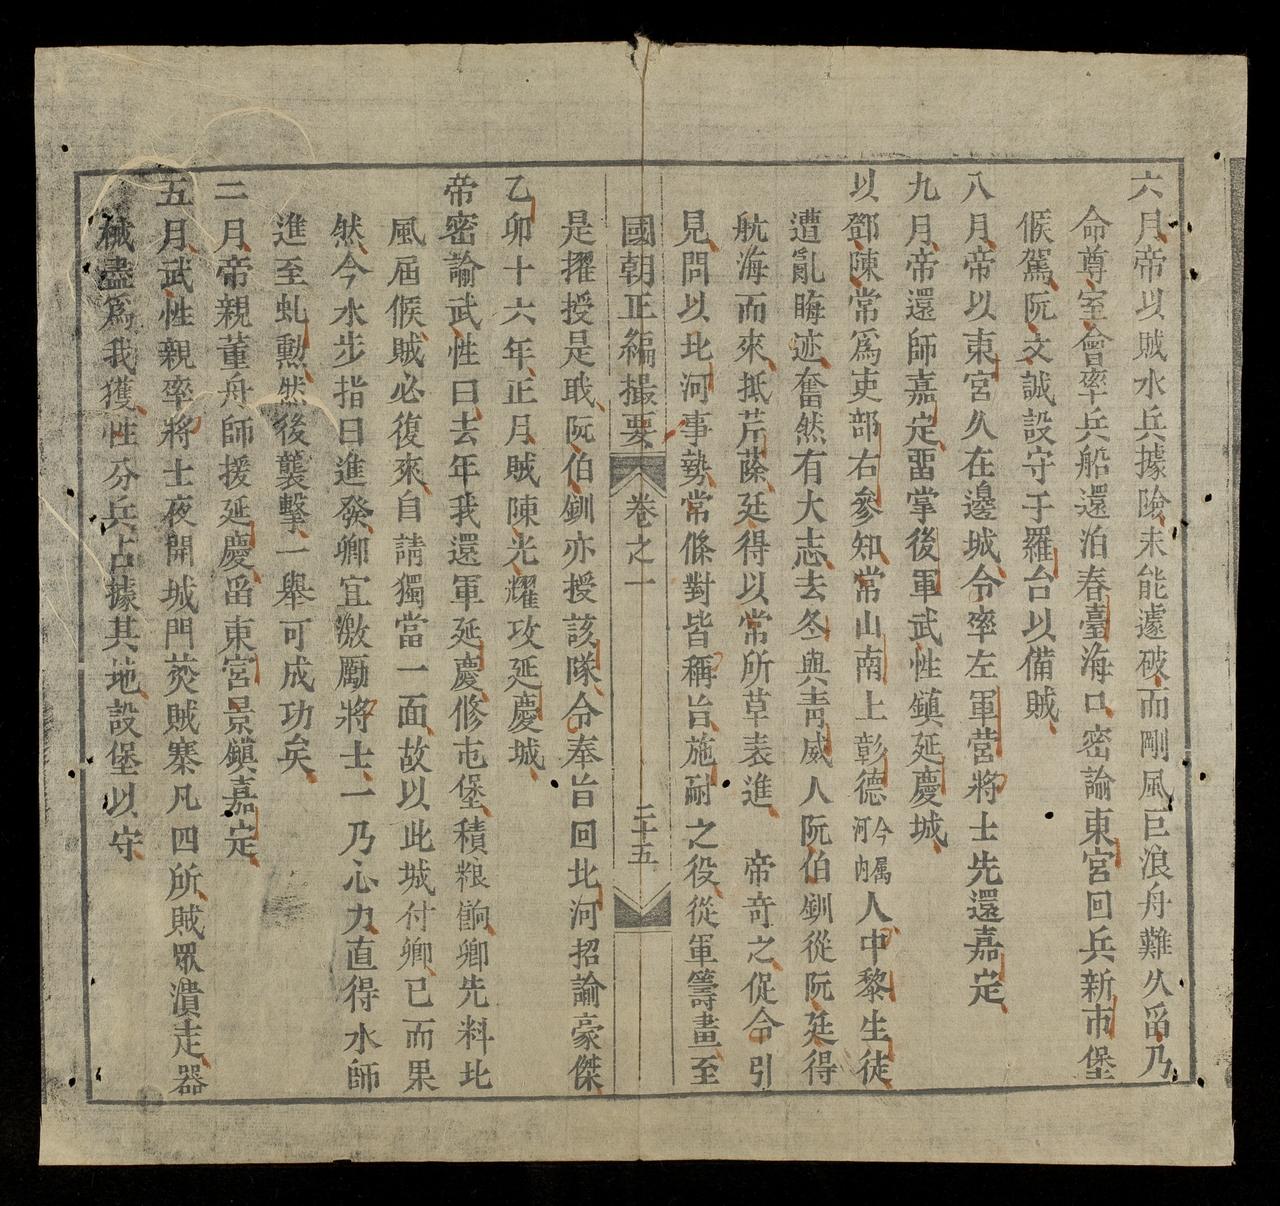 六月帝以賊水兵據險未能遽破而剛風巨浪舟難久畱乃
命尊室會率兵船還泊春臺海口密諭東宮回兵新市堡
候駕阮文誠設守于羅台以備賊
八月帝以東宮久在邊城令率左軍營將士先還嘉定
九月帝還師嘉定畱掌後軍武性鎮延慶城
以鄧陳常爲吏部右參知常山南上彰德今属河內人中黎生徒
遭亂晦迹奮然有大志去冬與青威人阮伯釧從阮廷得
航海而來抵芹蒢廷得以常所草表進 帝奇之促令引
見問以北河事勢常條對皆稱旨施耐之役從軍籌畫至
國朝正編撮要 卷之一 二十五
是擢授是職阮伯釧亦授該隊令奉旨回北河招諭豪傑
乙卯十六年正月賊陳光耀攻延慶城
帝密諭武性曰去年我還軍延慶修屯堡積粮餉卿先料北
風屆候賊必復來自請獨當一面故以此城付卿已而果
然今水步指日進發卿宜激勵將士一乃心力直得水師
進至虬勲然後襲擊一舉可成功矣
二月帝親董舟師援延慶畱東宮景鎮嘉定
五月武性親率將士夜開城門焚賊寨凡四所賊眾潰走器
械盡爲我獲性分兵占據其地設堡以守